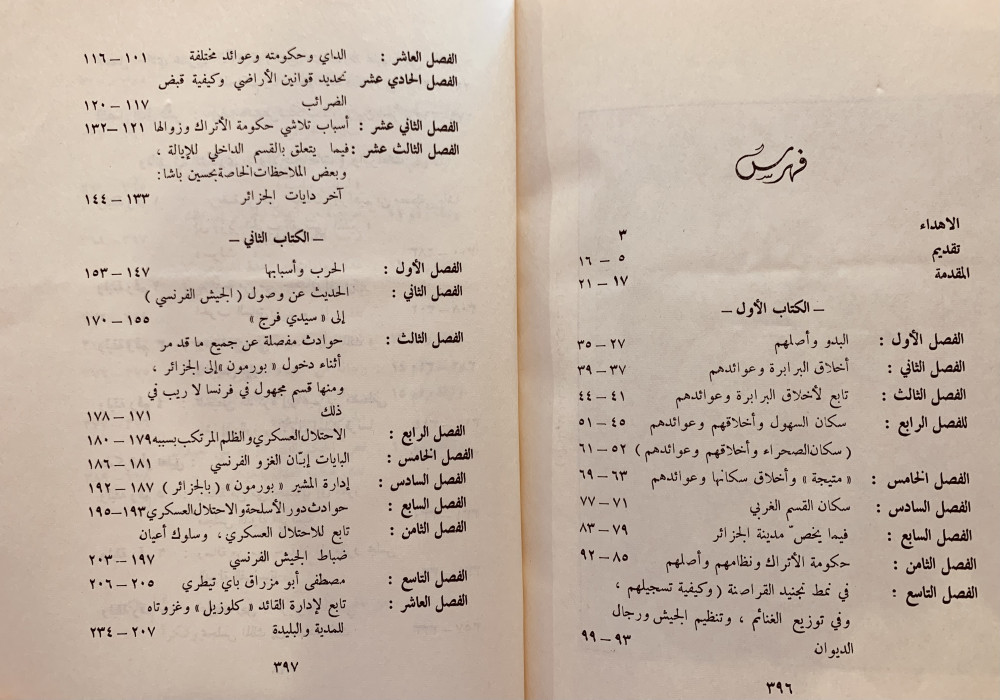 فهرس
الاهداء ٣
تقديم ٥ – ١٦
المقدمة ١٧ – ٢١
– الكتاب الأول –
الفصل الأول : البدو وأصلهم ٢٧ – ٣٥
الفصل الثاني : أخلاق البرابرة وعوائدهم ٣٧ – ٣٩
الفصل الثالث : تابع لأخلاق البرابرة وعوائدهم ٤١ – ٤٤
للفصل الرابع : سكان السهول وأخلاقهم وعوائدهم ٤٥ – ٥١
( سكان الصحراء وأخلاقهم وعوائدهم ) ٥٢ – ٦١
الفصل الخامس : « متيجة » وأخلاق سكانها وعوائدهم ٦٣ – ٦٩
الفصل السادس : سكان القسم الغربي ٧١ – ٧٧
الفصل السابع : فيما يخصّ مدينة الجزائر ٧٩ – ٨٣
الفصل الثامن : حكومة الأتراك ونظامهم وأصلهم ٨٥ – ٩٢
الفصل التاسع : في نمط تجنيد القراصنة ( وكيفية تسجيلهم ،
وفي توزيع الغنائم ، وتنظيم الجيش ورجال
الديوان ٩٣ – ٩٩
٣٩٦
الفصل العاشر : الداي وحكومته وعوائد مختلفة ١٠١ – ١١٦
الفصل الحادي عشر تحديد قوانين الأراضي وكيفية قبض
الضرائب ١١٧ – ١٢٠
الفصل الثاني عشر : أسباب تلاشي حكومة الأتراك وزوالها ١٢١ – ١٣٢
الفصل الثالث عشر : فيما يتعلق بالقسم الداخلي للإيالة ،
وبعض الملاحظات الخاصة بحسين باشا :
آخر دايات الجزائر ١٣٣ – ١٤٤
– الكتاب الثاني –
الفصل الأول : الحرب وأسبابها ١٤٧ – ١٥٣
الفصل الثاني : الحديث عن وصول ( الجيش الفرنسي )
إلى « سيدي فرج » ١٥٥ – ١٧٠
الفصل الثالث : حوادث مفصلة عن جميع ما قد مر
أثناء دخول « بورمون » إلى الجزائر ،
ومنها قسم مجهول في فرنسا لا ريب في
ذلك ١٧١ – ١٧٨
الفصل الرابع : الاحتلال العسكري والظلم المرتكب بسببه ١٧٩ – ١٨٠
الفصل الخامس : البايات إبّان الغزو الفرنسي ١٨١ – ١٨٦
الفصل السادس : إدارة المشير « بورمون » ( بالجزائر ) ١٨٧ – ١٩٢
الفصل السابع : حوادث دور الأسلحة والاحتلال العسكري ١٩٣ – ١٩٥
الفصل الثامن : تابع للاحتلال العسكري ، وسلوك أعيان
ضباط الجيش الفرنسي ١٩٧ – ٢٠٣
الفصل التاسع : مصطفى أبو مزراق باي تيطري ٢٠٥ – ٢٠٦
الفصل العاشر : تابع لإدارة القائد « كلوزيل » وغزوتاه
للمدية والبليدة ٢٠٧ – ٢٣٤
٣٩٧